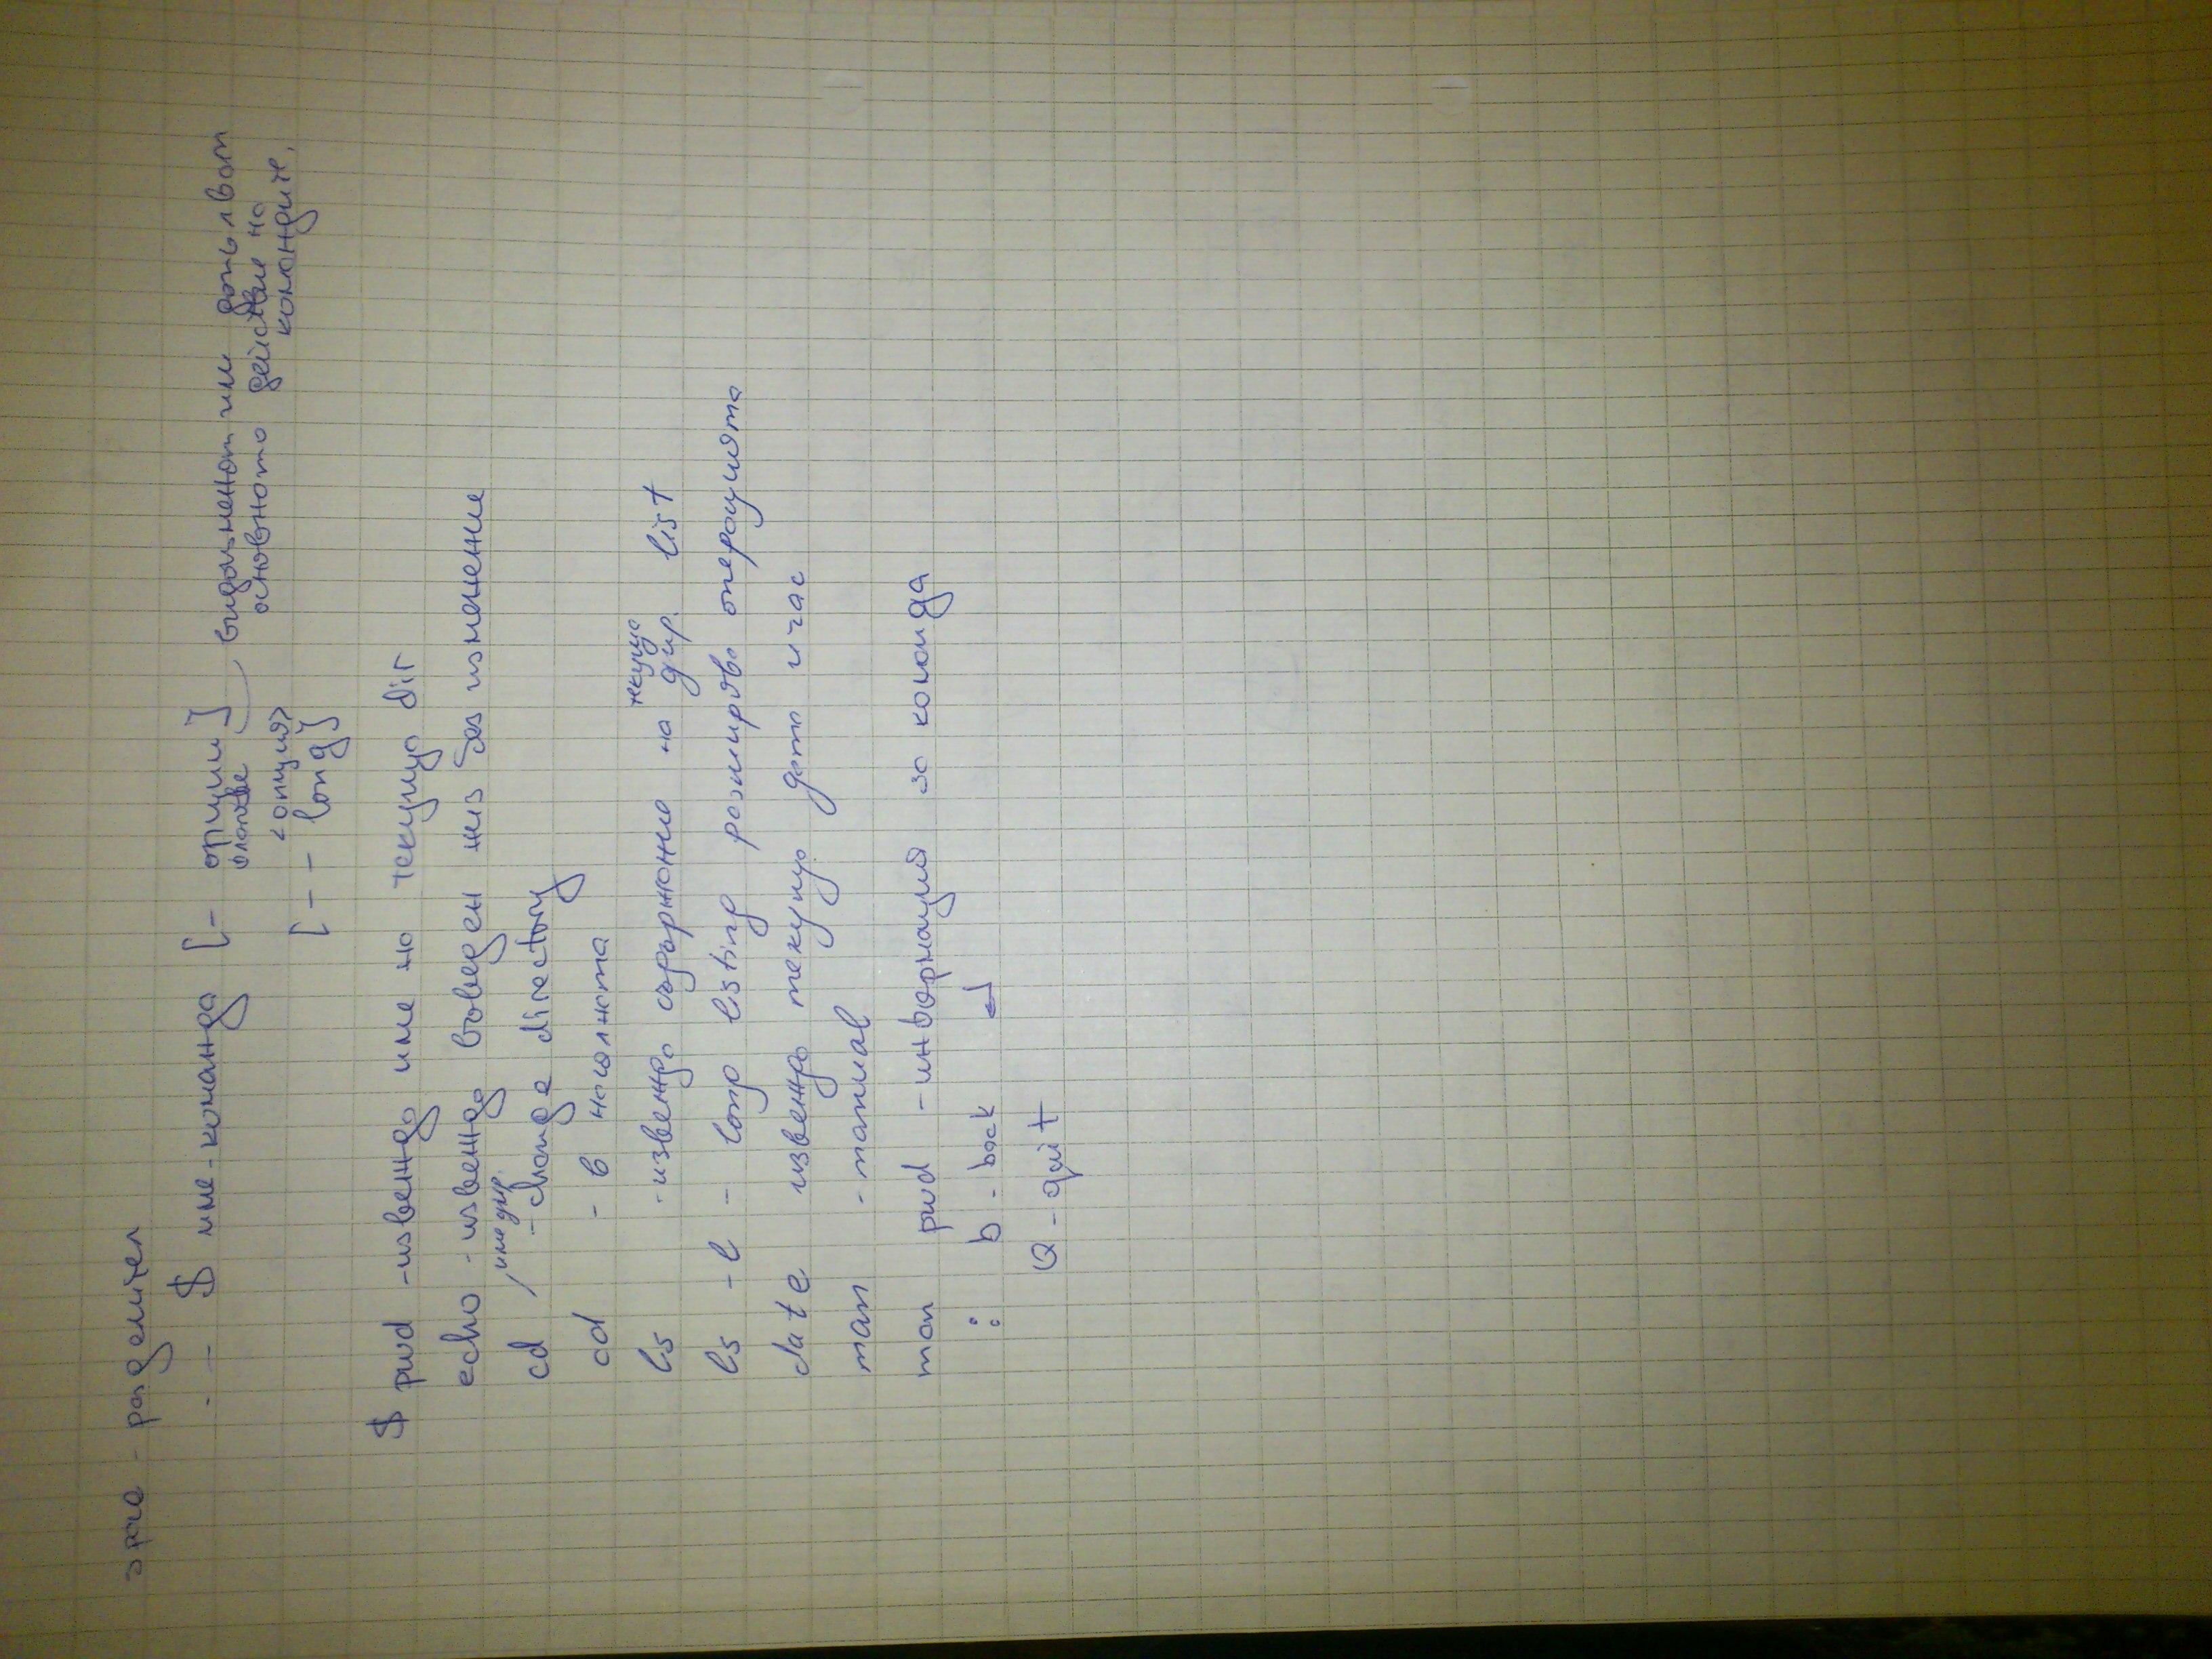 space - разделител
- - $ име-команда [- опции] видоизменят или допълват
флагове основното действие на
<опция> командите.
[-- long]
$ pwd - извежда име на текуща dir
echo - извежда въведен низ без изменение
cd / име дир. - change directory
cd - в началната
ls - извежда съдържание на текуща дир. list
ls -l - long listing разширява операцията
date извежда текуща дата и час
man - manual
man pwd - информация за команда
: b - back ↵
Q - quit